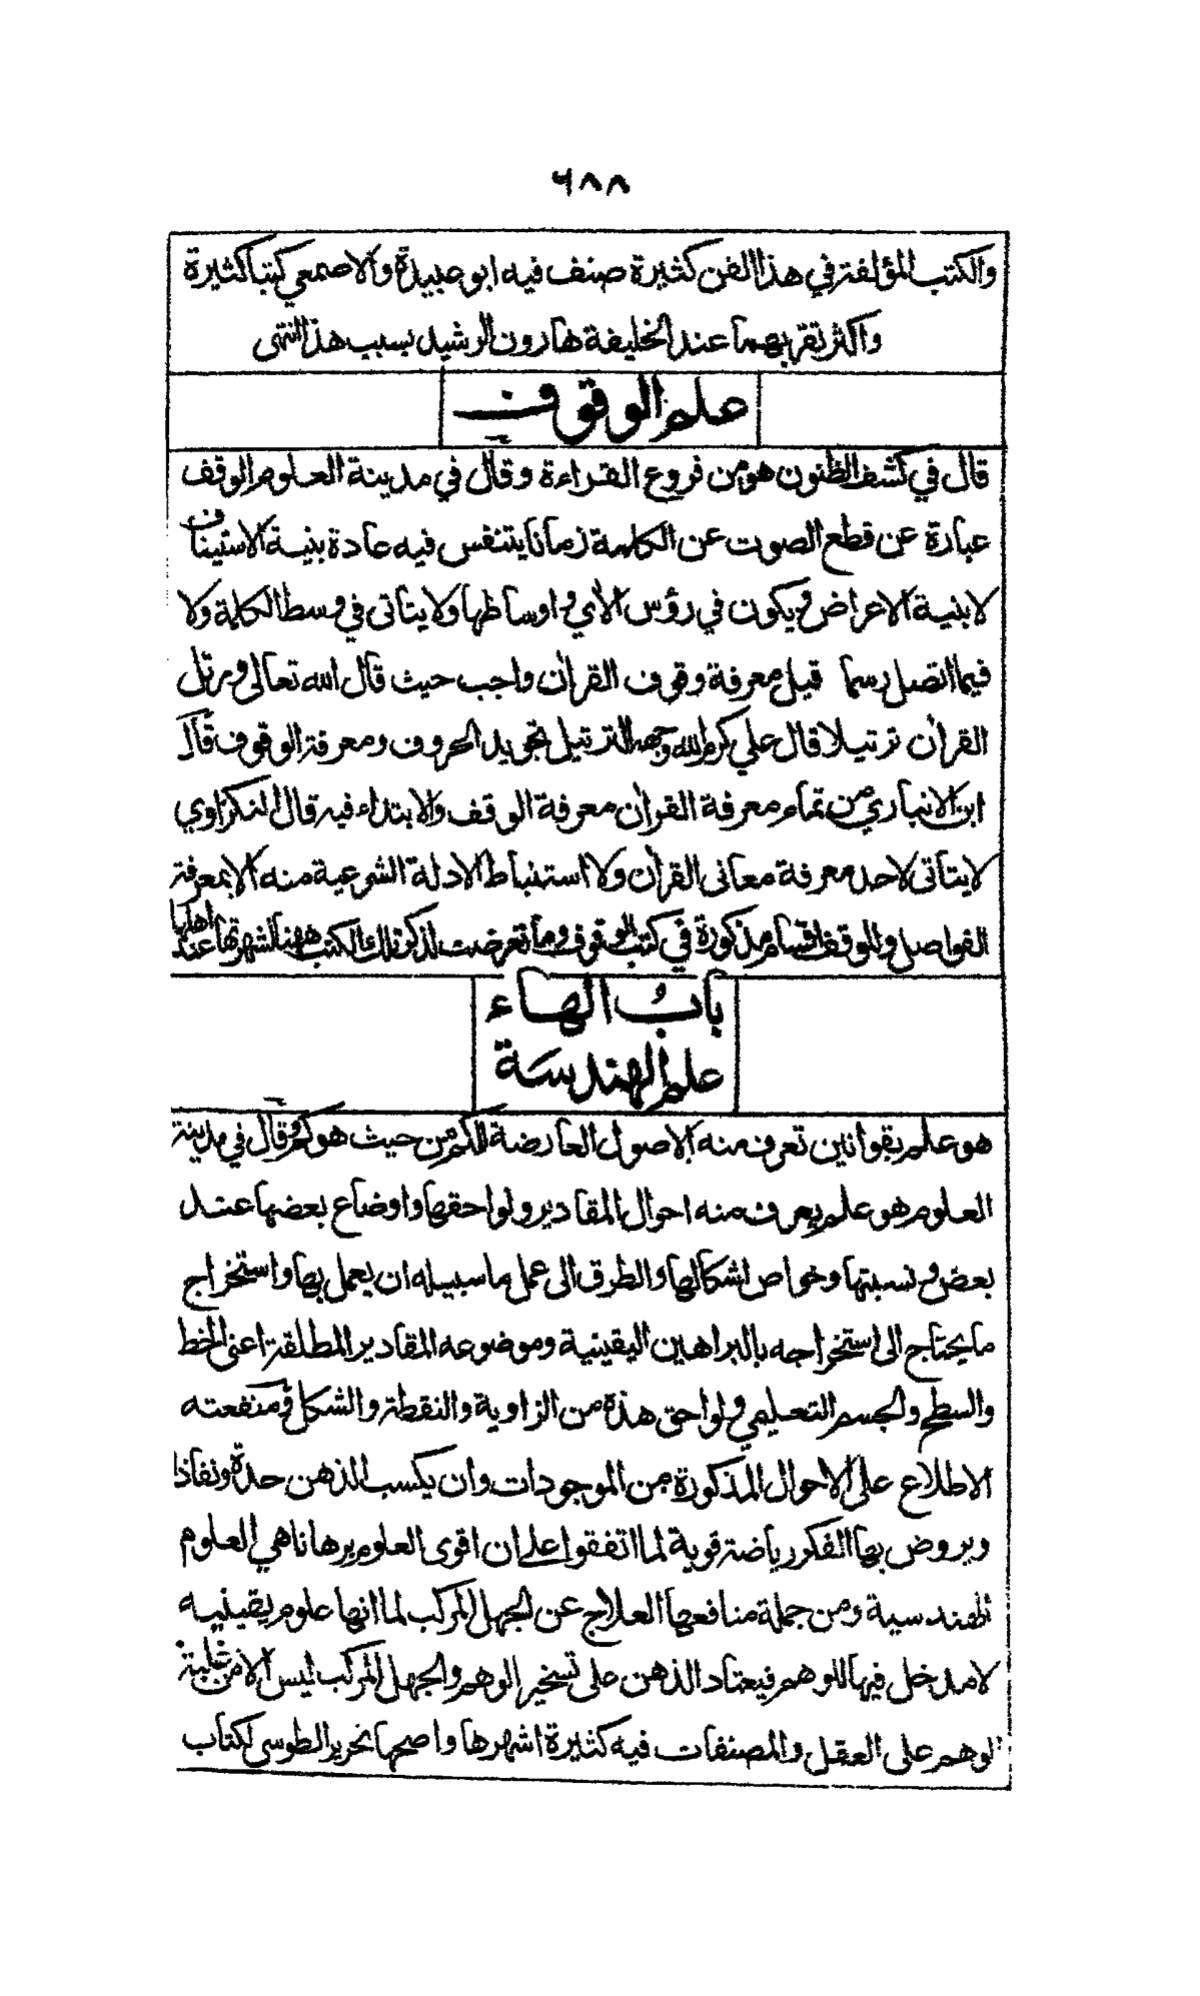 ٦٨٨
والكتب المؤلفة في هذا الفن كثيرة صنف فيه ابو عبيدة والاصمعي كتبا كثيرة
واكثر تقربهما عند الخليفة هارون الرشيد بسبب هذا انتهى
علم الوقوف
قال في كشف الظنون هو من فروع القراءة وقال في مدينة العلوم الوقف
عبارة عن قطع الصوت عن الكلمة زمانا يتنفس فيه عادة بنية الاستيناف
لا بنية الاعراض ويكون في رؤس الاي واوساطها ولا يتاتى في وسط الكلمة ولا
فيما اتصل رسما قيل معرفة وقوف القران واجب حيث قال الله تعالى ورتل
القران ترتيلا قال علي كرم الله وجهه الترتيل تجويد الحروف ومعرفة الوقوف قال
ابن الانباري من تمام معرفة القران معرفة الوقف والابتداء فيه قال النكزاوي
لا يتاتى لاحد معرفة معاني القران ولا استنباط الادلة الشرعية منه الا بمعرفة
الفواصل وللوقف اقسام مذكورة في كتب الوقوف وما تعرضت لذكر تلك الكتب ههنا لشهرتها عند اهلها
باب الهاء
علم الهندسة
هو علم بقوانين تعرف منه الاصول العارضة للكم من حيث هو كم وقال في مدينة
العلوم هو علم يعرف منه احوال المقادير ولواحقها واوضاع بعضها عند
بعض ونسبتها وخواص اشكالها والطرق الى عمل ما سبيله ان يعمل بها واستخراج
ما يحتاج الى استخراجه بالبراهين اليقينية وموضوعه المقادير المطلقة اعنى الخط
والسطح والجسم التعليمي ولواحق هذه من الزاوية والنقطة والشكل ومنفعته
الاطلاع على الاحوال المذكورة من الموجودات وان يكسب الذهن حدة ونفاذا
ويروض بها الفكر رياضة قوية لما اتفقوا على ان اقوى العلوم برهانا هي العلوم
الهندسية ومن جملة منافعها العلاج عن الجهل المركب لما انها علوم يقينيه
لا مدخل فيها للوهم فيعتاد الذهن على تسخير الوهم والجهل المركب ليس الا من غلبة
الوهم على العقل والمصنفات فيه كثيرة اشهرها واصحها تحرير الطوسي لكتاب